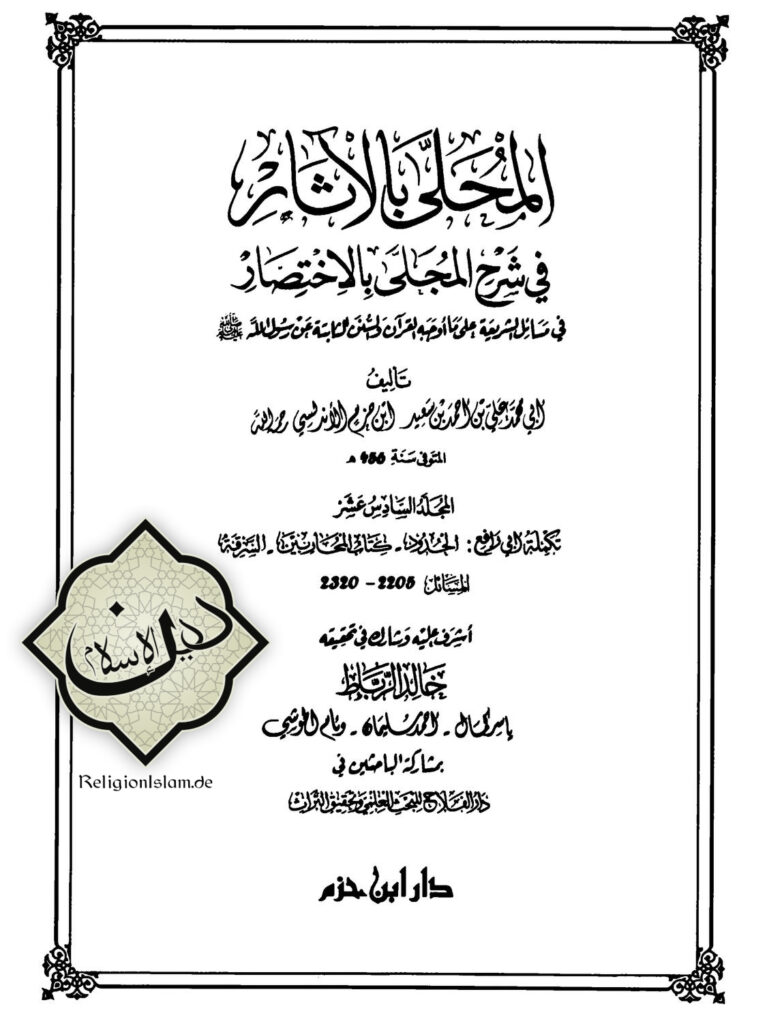 المُحَلَّى بِالآثَارِ
فِي شَرْحِ المُجَلَّى بِالاِخْتِصَارِ
في مسائل الشريعة على ما أوجبه القرآن والسنن الثابتة عن رسول الله ﷺ
تأليف
أبي محمد علي بن أحمد بن سعيد ابن حزم الأندلسي رحمه الله
المتوفى سنة 456 هـ
المجلد السادس عشر
تكملة أبي رافع: الحدود - كتاب المحاربين - السرقة
المسائل 2205 - 2320
أشرف عليه وشارك في تحقيقه
خالد الرباط
ياسر كمال - أحمد سليمان - وئام الحوشي
بمشاركة الباحثين في
دار الفلاح للبحث العلمي وتحقيق التراث
دار ابن حزم
دين الإسلام
ReligionIslam.de